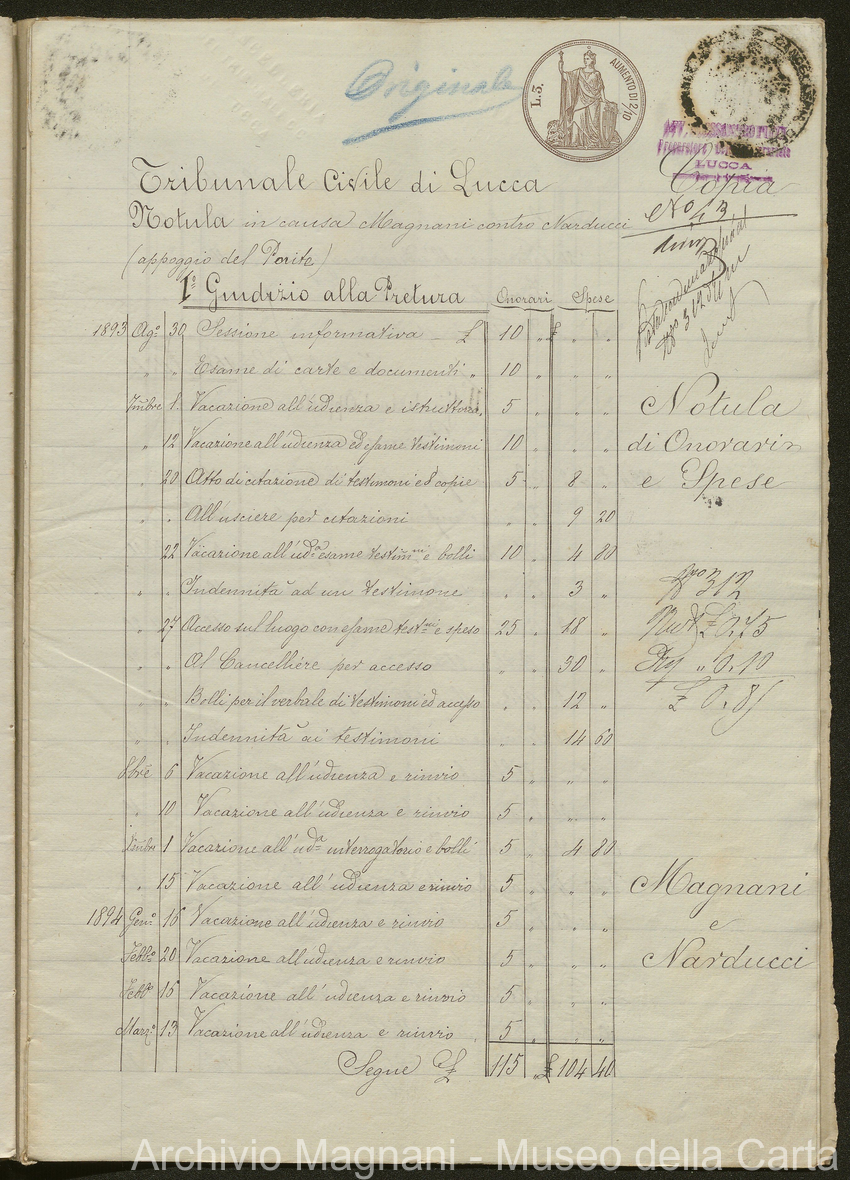 Originale
L. 5. AUMENTO DI 2/10
LUCCA
Tribunale Civile di Lucca
Copia
Notula in causa Magnani contro Narducci
(appoggio del Perite)
1° Giudizio alla Pretura Onorari Spese
1893 Ag.° 30 Sessione informativa £ 10 „ £ „ „
„ „ Esame di carte e documenti „ 10 „ „ „
7mbre 1. Vacazione all'udienza e istruttoria 5 „ „ „
Notula
„ 12 Vacazione all'udienza ed esame testimoni 10 „ „ „
di Onorari
„ 20 Atto di citazione di testimoni ed copie 5 „ 8 „
e Spese
„ „ All'usciere per citazioni „ „ 9 20
„ 22 Vacazione all'ud.a esame testim.ni e bolli 10 „ 4 80
„ „ Indennità ad un testimone „ „ 3 „
N° 312
„ 27 Accesso sul luogo con esame test.ni e speso 25 „ 18 „
£ 0,75
„ „ Al Cancelliere per accesso „ „ 30 „
„ 0.10
„ „ Bolli per il verbale di testimoni ed accesso „ „ 12 „
£ 0.85
„ „ Indennità ai testimoni „ „ 14 60
8bre 6 Vacazione all'udienza e rinvio 5 „ „ „
„ 10 Vacazione all'udienza e rinvio 5 „ „ „
1 Vacazione all'ud.a interrogatorio e bolli 5 „ 4 80
„ 15 Vacazione all'udienza e rinvio 5 „ „ „
Magnani
1894 Gen.° 16 Vacazione all'udienza e rinvio 5 „ „ „
e
Febb.° 20 Vacazione all'udienza e rinvio 5 „ „ „
Narducci
Febb.° 15 Vacazione all'udienza e rinvio 5 „ „ „
Marz.° 13 Vacazione all'udienza e rinvio 5 „ „ „
Segue £ 115 „ £ 104 40
Archivio Magnani - Museo della Carta